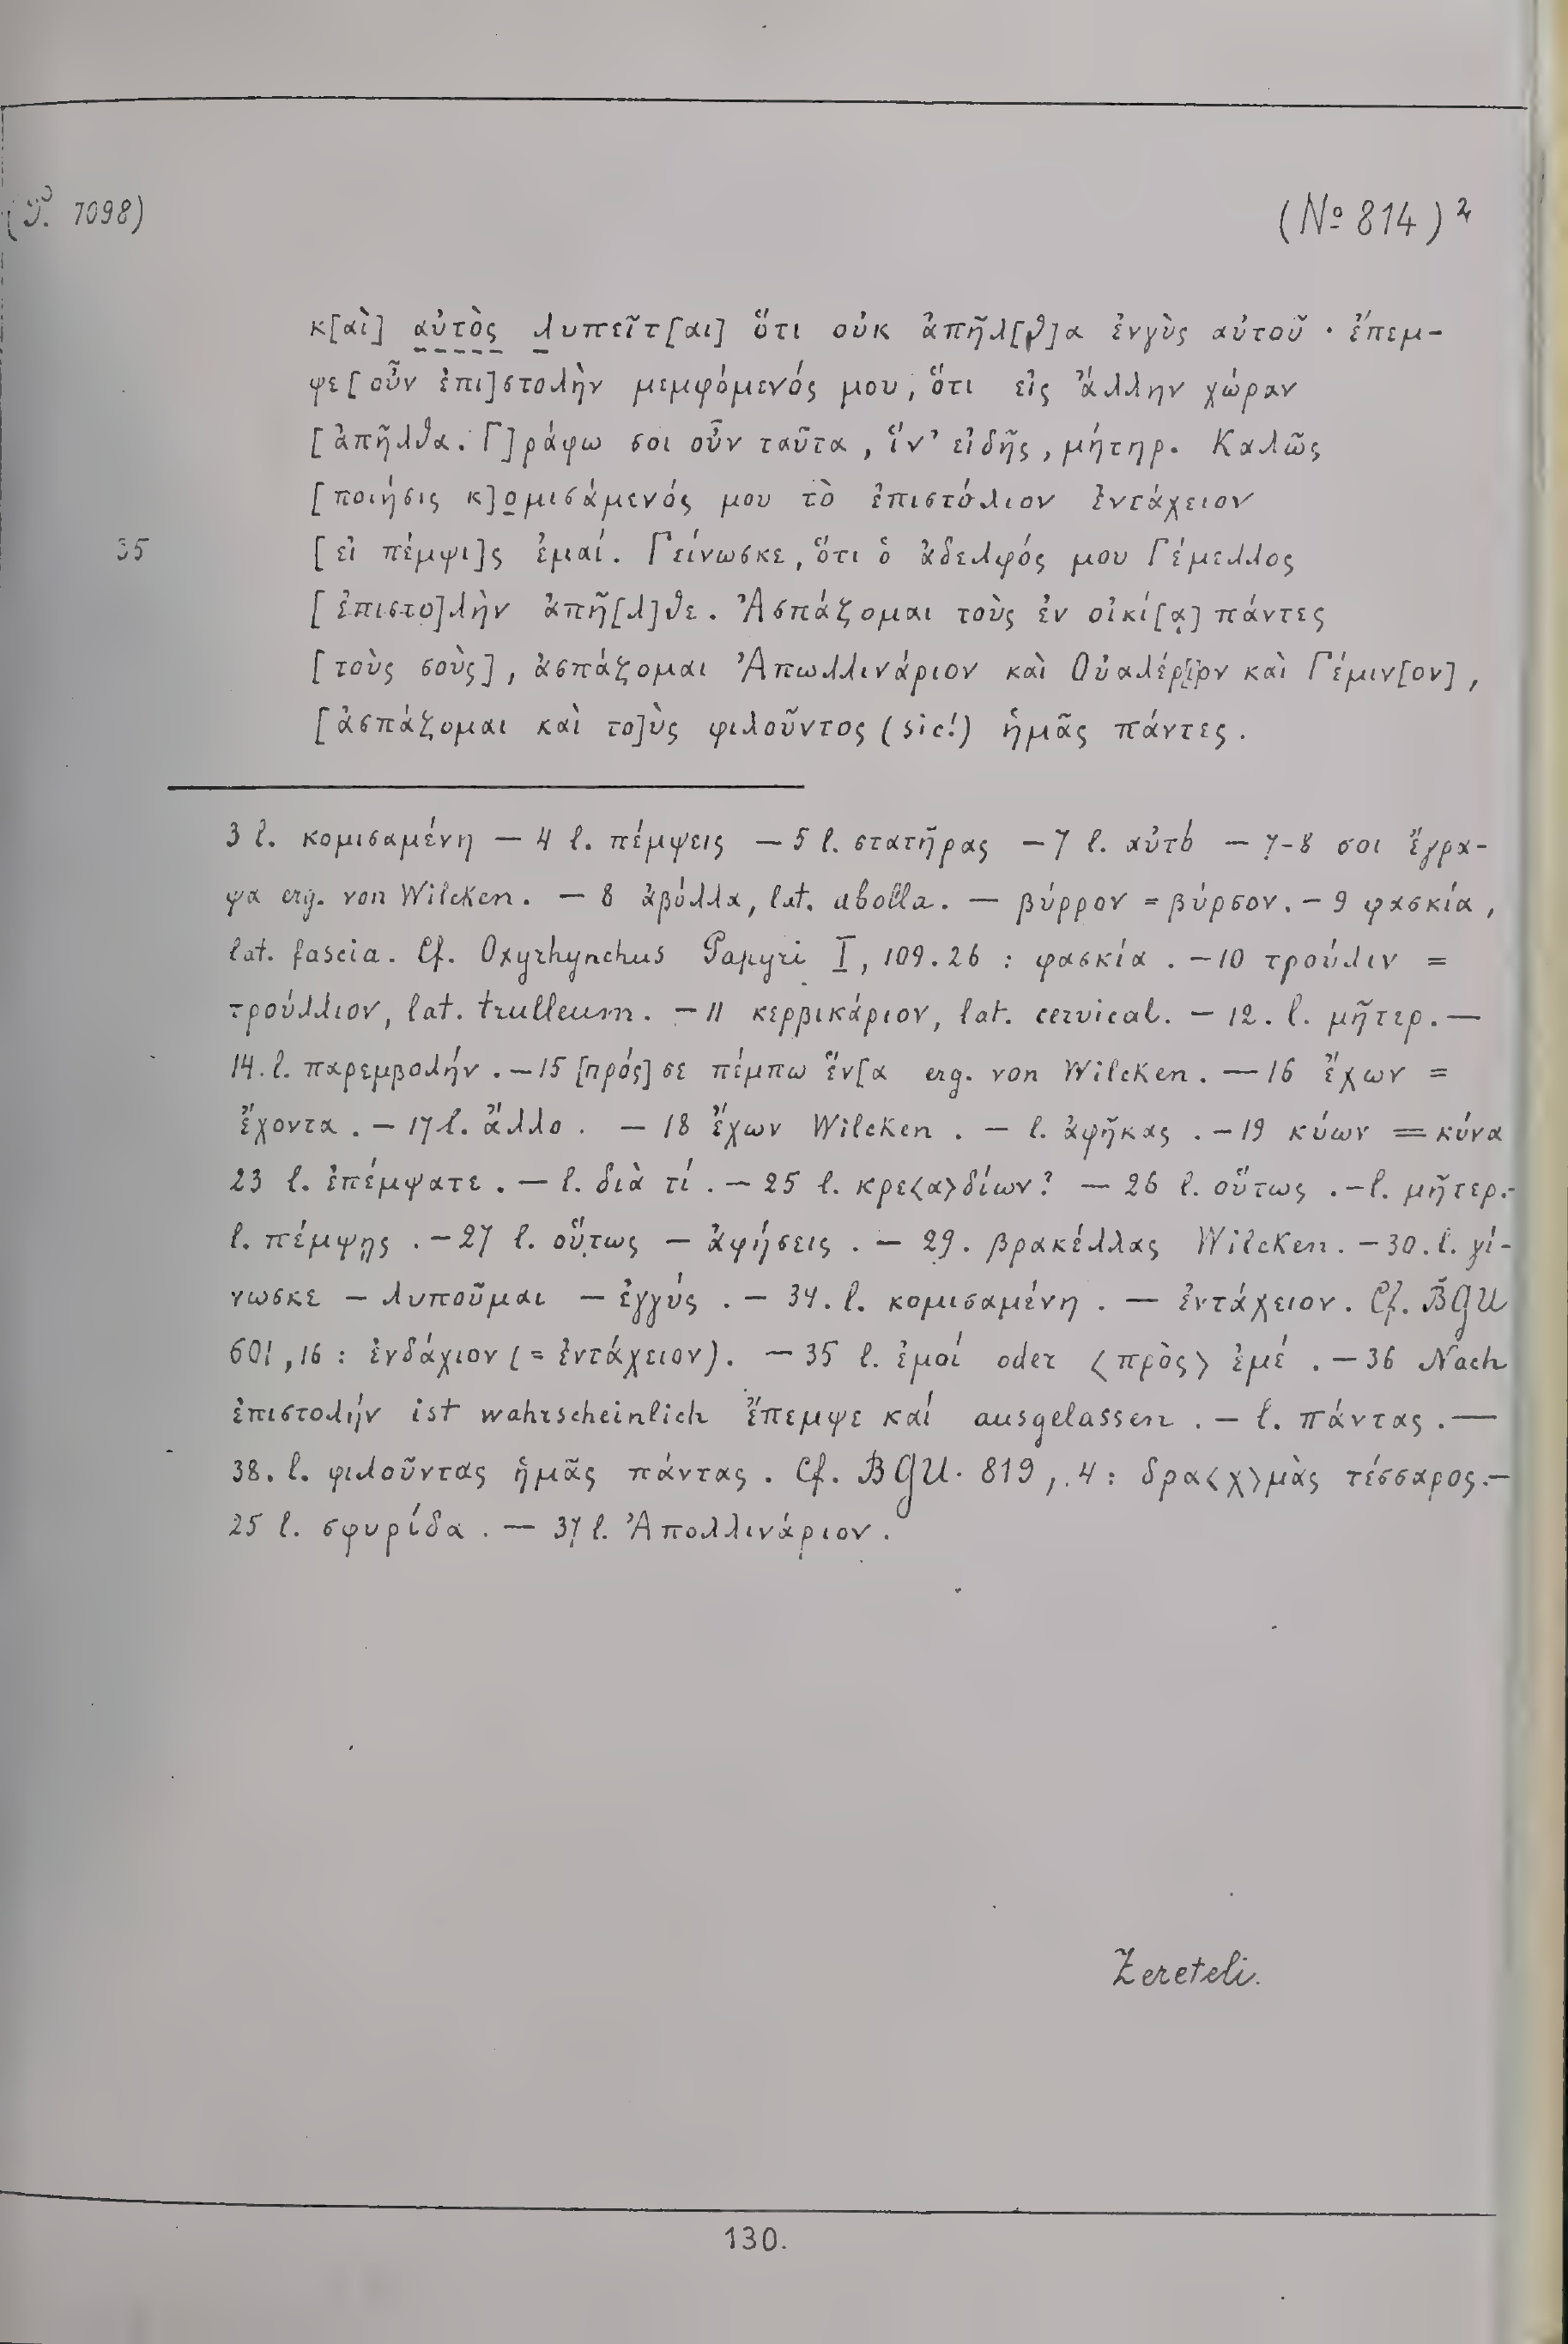 (P. 7098) (№ 814)²
κ[αὶ] αὐτὸς λυπεῖτ[αι] ὅτι οὐκ ἀπῆλ[θ]α ἐνγὺς αὐτοῦ · ἔπεμ-
ψε[οὖν ἐπι]στολὴν μεμφόμενός μου, ὅτι εἰς ἄλλην χώραν
[ἀπῆλθα. Γ]ράφω σοι οὖν ταῦτα, ἵν' εἰδῆς, μήτηρ. Καλῶς
[ποιήσις κ]ομισάμενός μου τὸ ἐπιστόλιον ἐντάχειον
35 [εἰ πέμψι]ς ἐμαί. Γείνωσκε, ὅτι ὁ ἀδελφός μου Γέμελλος
[ἐπιστο]λὴν ἀπῆ[λ]θε. Ἀσπάζομαι τοὺς ἐν οἰκί[ᾳ] πάντες
[τοὺς σοὺς], ἀσπάζομαι Ἀπωλλινάριον καὶ Οὐαλέρ[ι]ον καὶ Γέμιν[ον],
[ἀσπάζομαι καὶ το]ὺς φιλοῦντος (sic!) ἡμᾶς πάντες.
3 l. κομισαμένη — 4 l. πέμψεις — 5 l. στατῆρας — 7 l. αὐτό — 7-8 σοι ἔγρα-
ψα erg. von Wilcken. — 8 ἀβόλλα, lat. abolla. — βύρρον = βύρσον. — 9 φασκία,
lat. fascia. Cf. Oxyrhynchus Papyri I, 109.26 : φασκία. — 10 τρούλιν =
τρούλλιον, lat. trulleum. — 11 κερβικάριον, lat. cervical. — 12. l. μῆτερ. —
14. l. παρεμβολήν. — 15 [πρός] σε πέμπω ἕν[α erg. von Wilcken. — 16 ἔχων =
ἔχοντα. — 17 l. ἄλλο. — 18 ἔχων Wilcken. — l. ἀφῆκας. — 19 κύων = κύνα
23 l. ἐπέμψατε. — l. διὰ τί. — 25 l. κρε<α>δίων? — 26 l. οὕτως. — l. μῆτερ. -
l. πέμψῃς. — 27 l. οὕτως — ἀφήσεις. — 29. βρακέλλας Wilcken. — 30. l. γί-
νωσκε — λυποῦμαι — ἐγγύς. — 34. l. κομισαμένη. — ἐντάχειον. Cf. BGU
601, 16 : ἐνδάχιον (= ἐντάχειον). — 35 l. ἐμοί oder <πρὸς> ἐμέ. — 36 Nach
ἐπιστολήν ist wahrscheinlich ἔπεμψε καί ausgelassen. — l. πάντας. —
38. l. φιλοῦντας ἡμᾶς πάντας. Cf. BGU. 819, 4 : δρα<χ>μὰς τέσσαρος. —
25 l. σφυρίδα. — 37 l. Ἀπολλινάριον.
Zereteli.
130.